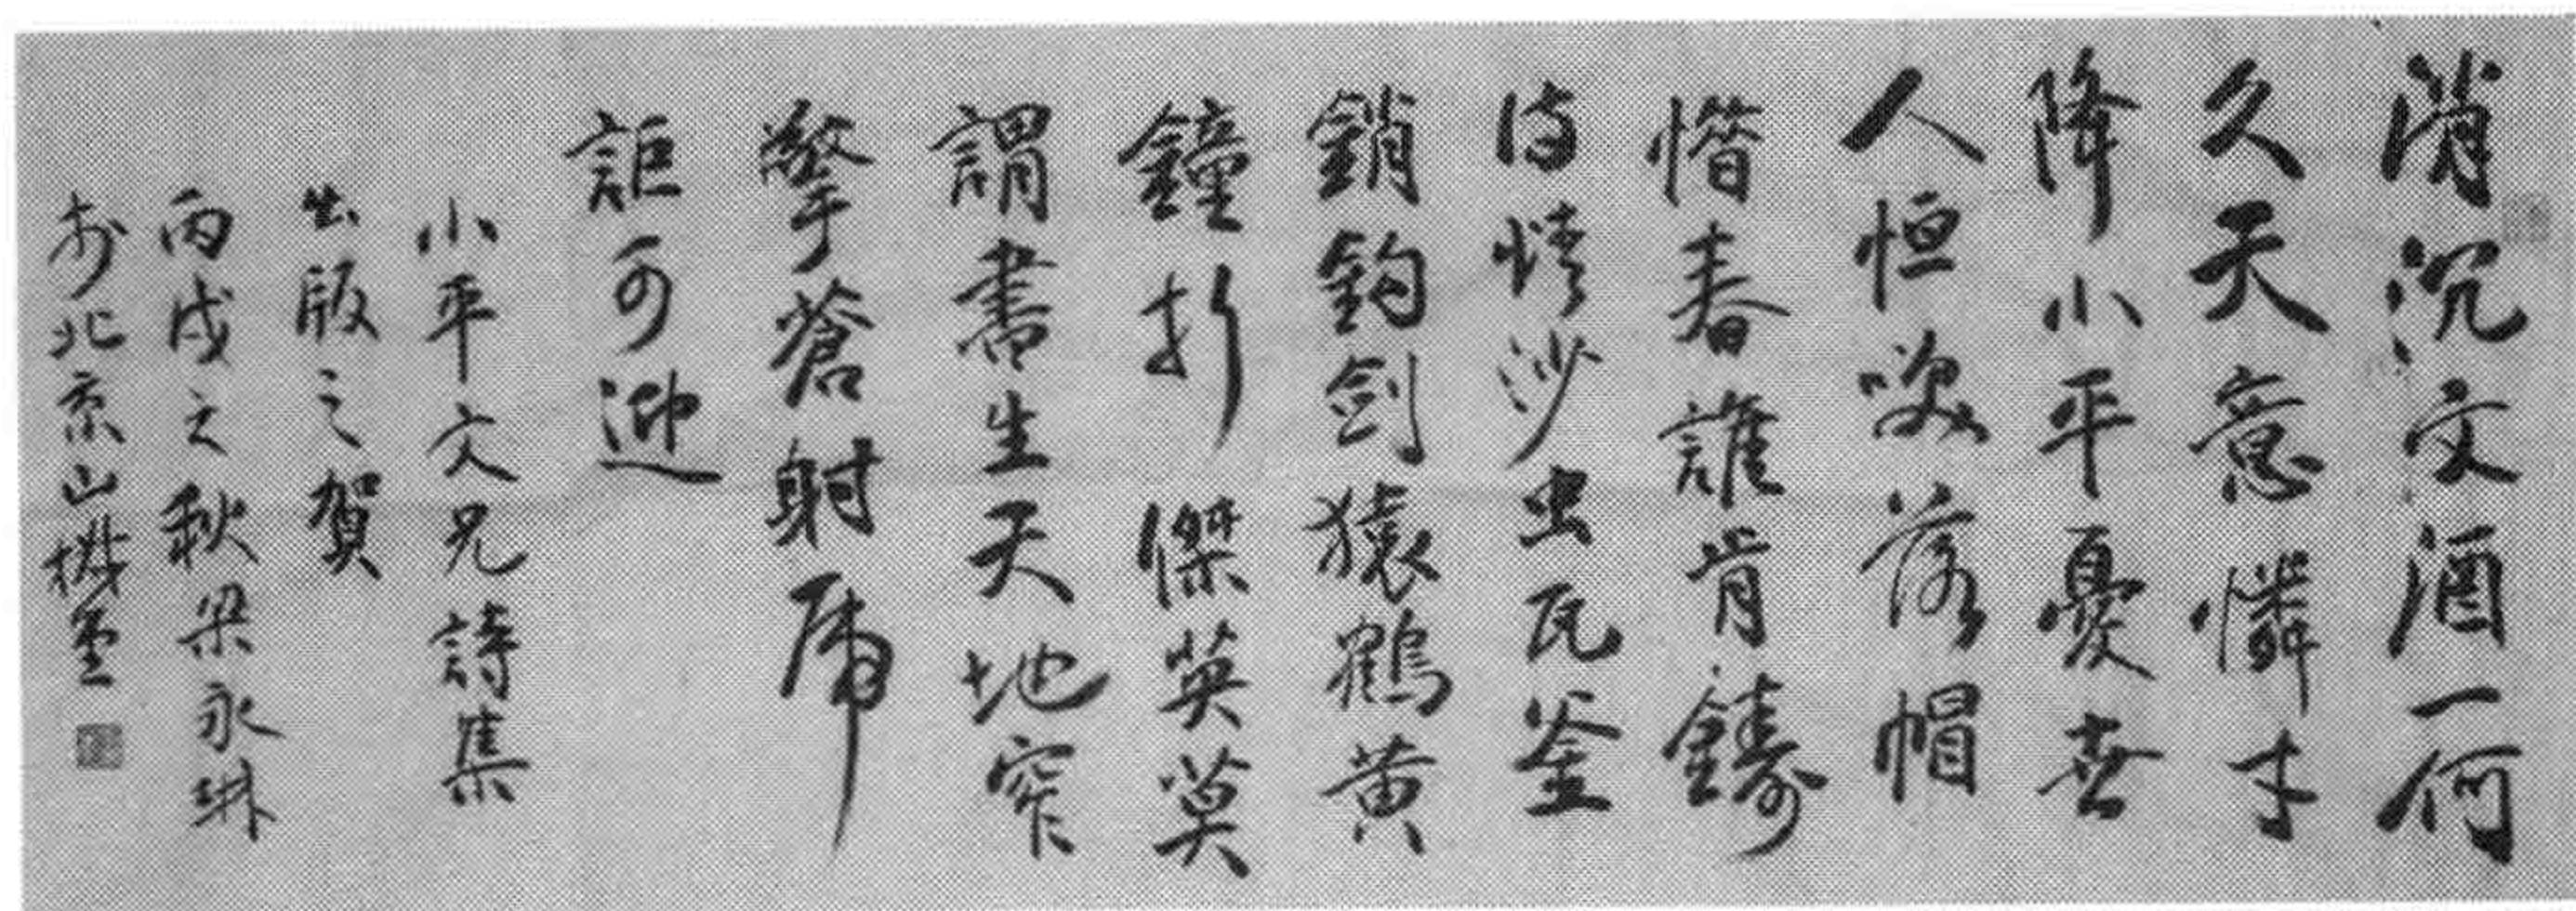 消沉文酒一何
久天意憐才
降小平憂世
人恒嗟落帽
惜春誰肯鑄
詩情沙虫瓦釜
銷鈎劍猿鶴黄
鐘折傑英莫
謂書生天地窄
擎蒼射虎
詎可迎
小平文兄詩集
出版之賀
丙戌之秋梁永琳
於北京山